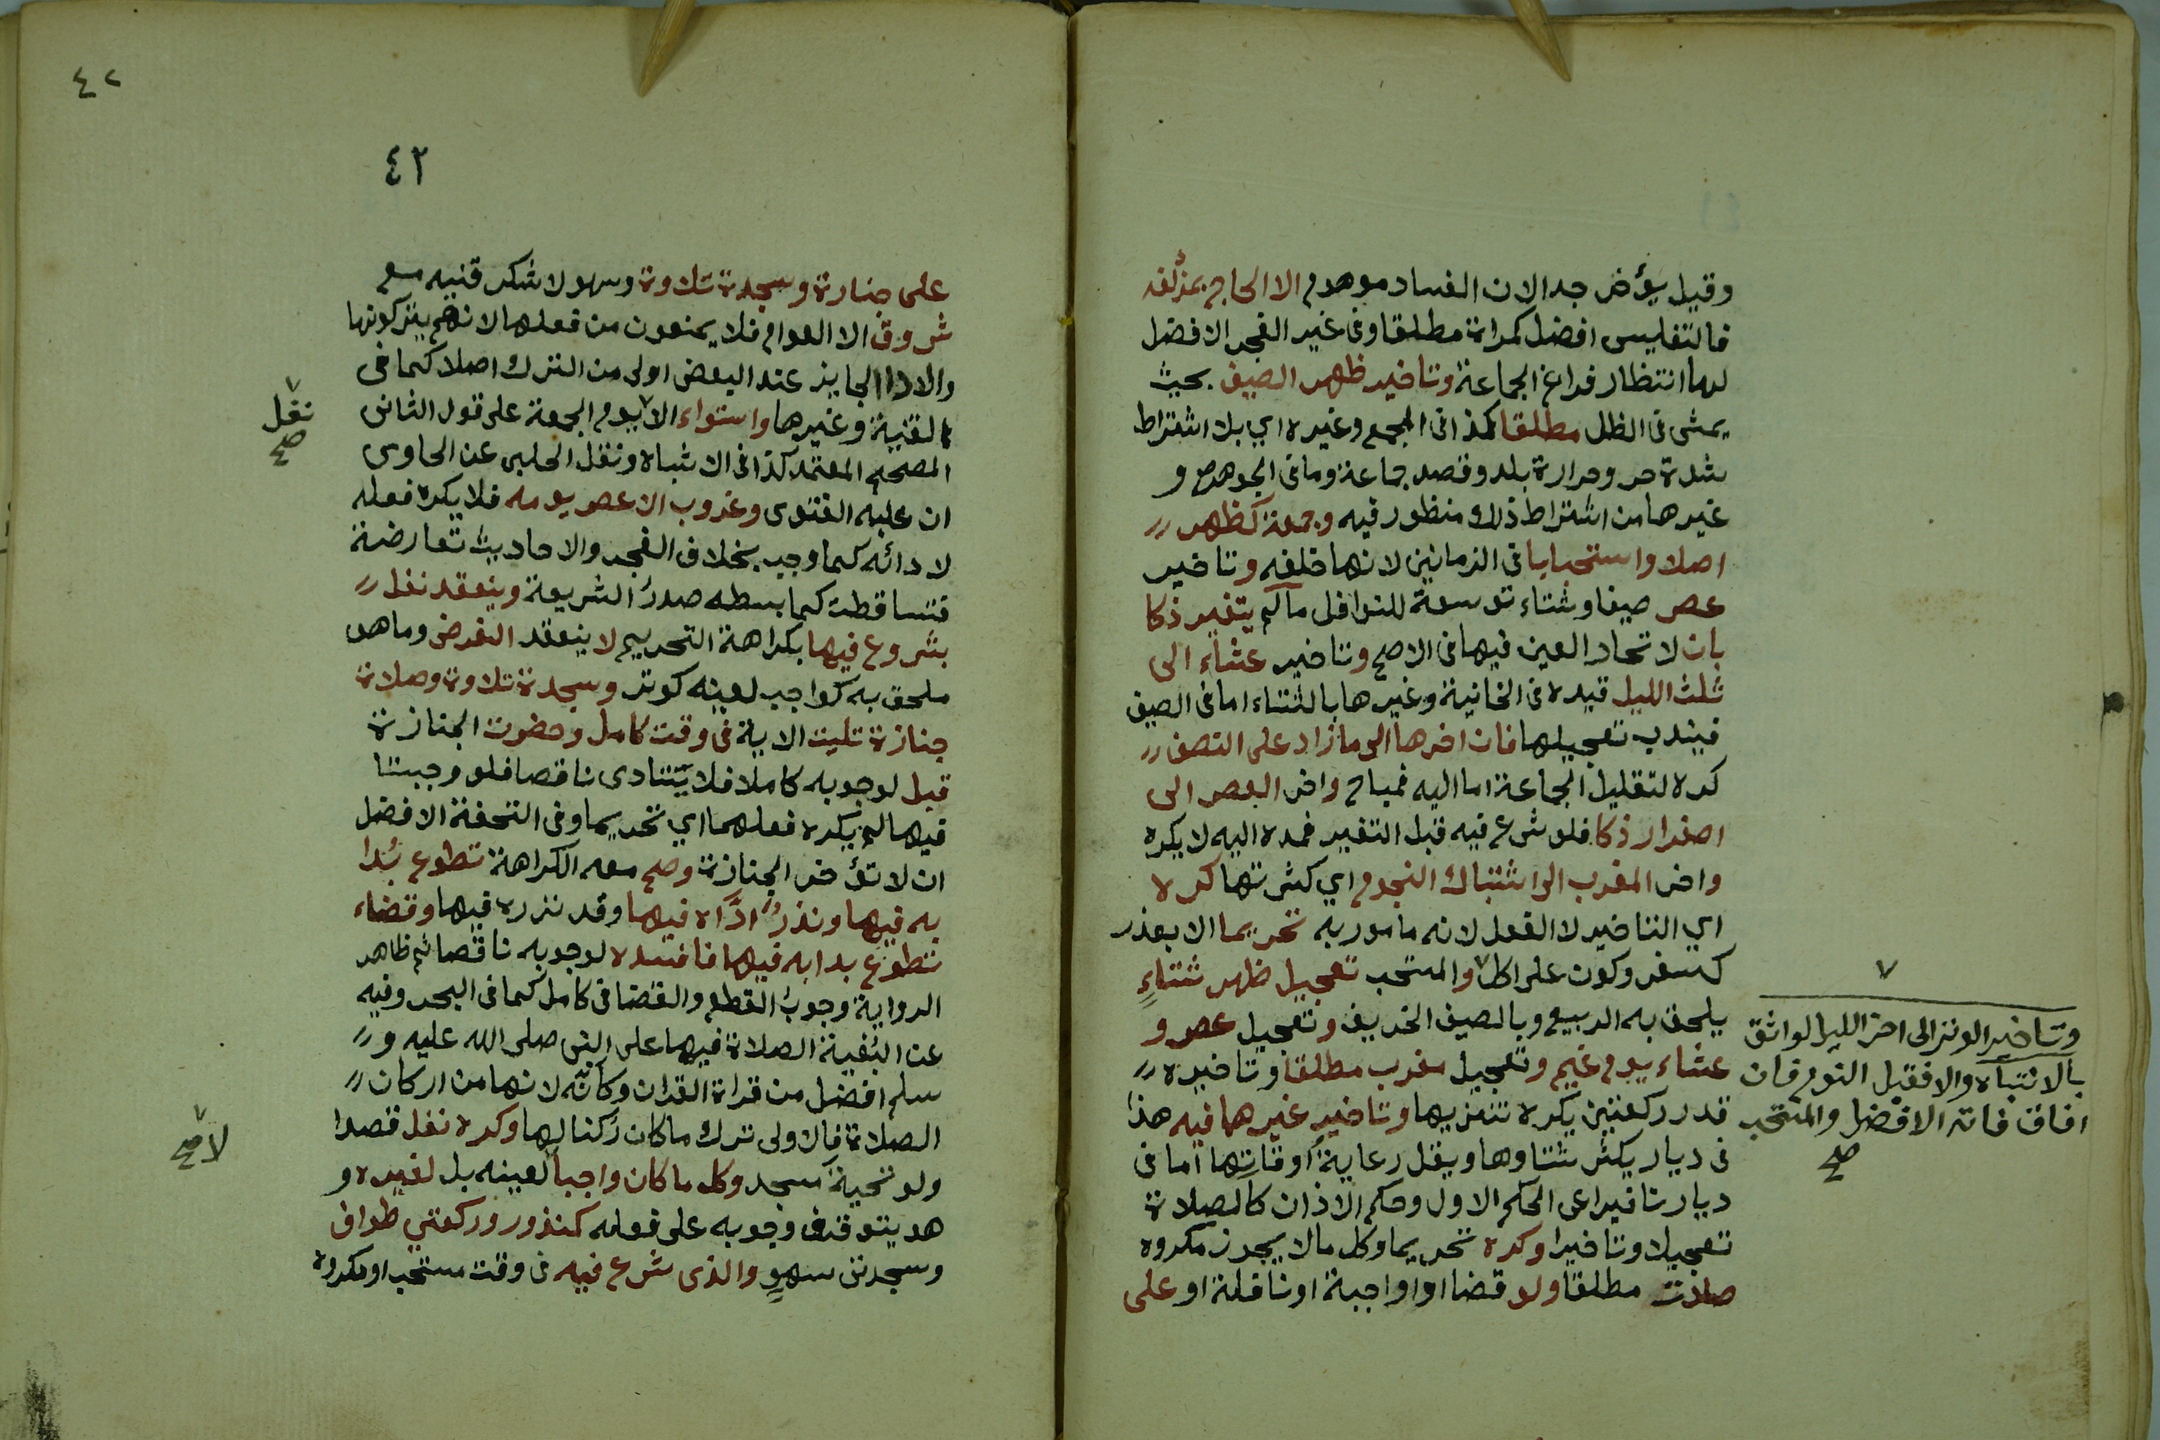 وقيل يؤخر جدا لان الفساد موهوم الا الحاج بمزلفه
فالتغليس افضل كمراة مطلقا وفي غير الفجر الافضل
لها انتظار فراغ الجماعة وتاخير ظهر الصيف بحيث
يمشى فى الظل مطلقا كذا فى المجمع وغيره اي بلا اشتراط
شدة حر وحرارة بلد وقصد جماعة وما فى الجوهرة و
غيرها من اشتراط ذلك منظور فيه وجمعة كظهر
اصلا واستحبابا فى الزمانين لانها خلفه وتاخير
عصر صيفا وشتاء توسعة للنوافل ما لم يتغير ذكا
بان لا تحار العين فيها فى الاصح وتاخير عشاء الى
ثلث الليل قيده فى الخانية وغيرها بالشتاء اما فى الصيف
فيندب تعجيلها فان اخرها الى ما زاد على النصف
كره لتقليل الجماعة اما اليه فمباح واخر العصر الى
اصفرار ذكا فلو شرع فيه قبل التغير فمده اليه لا يكره
واخر المغرب الى اشتباك النجوم اي كثرتها كره
اي التاخير لا الفعل لانه مامور به تحريما الا بعذر
كسفر وكون على اكل والمستحب تعجيل ظهر شتاءٍ
يلحق به الربيع وبالصيف الخريف وتعجيل عصر و
عشاء يوم غيم وتعجيل مغرب مطلقا وتاخيره
قدر ركعتين يكره تنزيها وتاخير غيرهما فيه هذا
فى ديار يكثر شتاوها ويقل رعاية أوقاتها اما فى
ديارنا فيراعى الحكم الاول وحكم الاذان كالصلاة
تعجيلا وتاخيرا وكره تحريما وكل ما لا يجوز مكروه
صلات مطلقا ولو قضا او واجبة او نافلة او على
وتاخير الوتر الى اخر الليل لواثق
بالانتباه والا فقبل النوم فان
افاق فاته الافضل والمستحب
صح
٤٢
٤٢
على جنازة وسجدة تلاوة وسهو لا شكر قنيه مع
شروق الا العوام فلا يمنعون من فعلها لانهم يتركونها
والادا الجايز عند البعض اولى من الترك اصلا كما فى
القنية وغيرها واستواء الا يوم الجمعة على قول الثانى
المصحح المعتمد كذا فى الاشباه ونقل الحلبى عن الحاوى
ان عليه الفتوى وغروب الا عصر يومه فلا يكره فعله
لادائه كما وجب بخلاف الفجر والاحاديث تعارضة
فتساقطت كما بسطه صدر الشريعة وينعقد نفل
بشروع فيها بكراهة التحريم لا ينعقد الفرض وما هو
ملحق به كواجب لعينه كوتر وسجدة تلاوة وصلاة
جنازة تليت الاية فى وقت كامل وحضرت الجنازة
قبل لوجوبه كاملا فلا يتادى ناقصا فلو وجبتا
فيها لم يكره فعلهما اي تحريما وفى التحفة الافضل
ان لا تؤخر الجنازة وصح معه الكراهة تطوع بُدا
به فيها ونذر ادّاه فيها وقد نذره فيها وقضاء
تطوع بدا به فيها فافسده لوجوبه ناقصا ثم ظاهر
الرواية وجوبُ القطع والقضا فى كامل كما فى البحر وفيه
عن البُغية الصلاة فيها على النبى صلى الله عليه و
سلم افضل من قراة القران وكأنه لانها من اركان
الصلاة فالاولى ترك ما كان رُكنا لها وكره نفل قصدا
ولو تحية مسجد وكل ما كان واجبا لعينه بل لغيره و
هو يتوقف وجوبه على فعله كمنذور وركعتي طواف
وسجدتى سهوٍ والذى شرع فيه فى وقت مستحب او مكروه
نقل
صح
لا صح